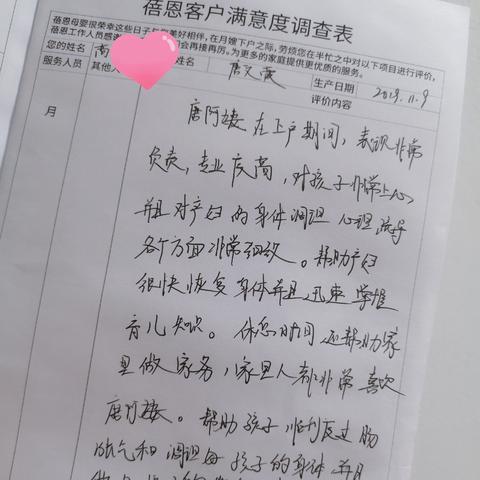 蓓恩客户满意度调查表
蓓恩母婴很荣幸这些日子与您美好相伴，在月嫂下户之际，劳烦您在半忙之中对以下项目进行评价，
蓓恩工作人员感谢 会再接再厉。为更多的家庭提供更优质的服务。
您的姓名 南 姓名 唐文霞 生产日期 2019.11.9
服务人员 其他人 评价内容
月
唐阿姨在上户期间，表现非常
负责，专业度高，对孩子非常上心，
并且对产妇的身体调理 心理疏导
各个方面非常细致。帮助产妇
很快恢复身体并且迅速掌握
育儿知识。休息时间还帮助家
里做家务，家里人都非常喜欢
唐阿姨。帮助孩子顺利度过肠
胀气和调理母孩子的身体并且